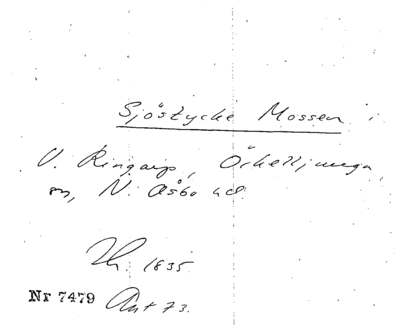 Sjöstycke Mossen i
V. Ringarp, Örkelljunga
sn, N. Åsbo hd.
1835
Nr 7479 Ant 73.